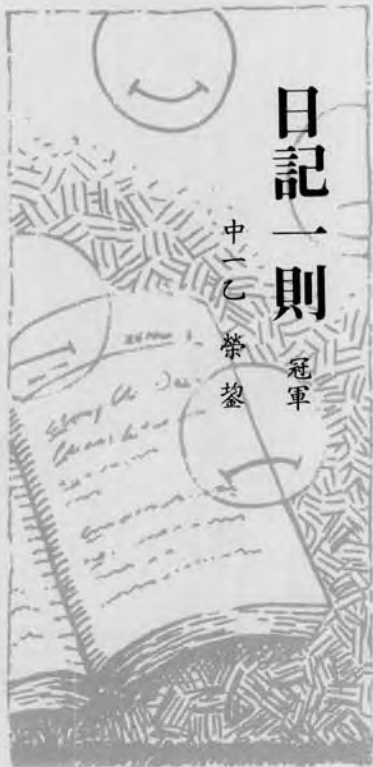 日記一則 冠軍
中一乙 榮鋆